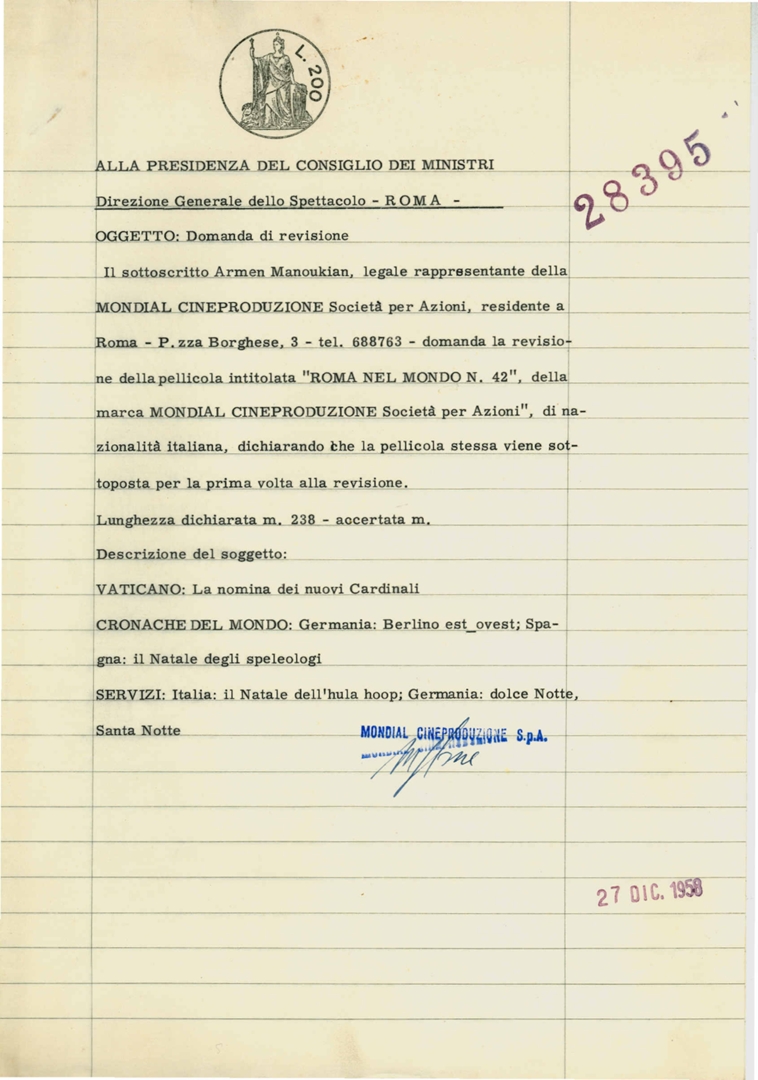 L. 200
28395
ALLA PRESIDENZA DEL CONSIGLIO DEI MINISTRI
Direzione Generale dello Spettacolo - ROMA -
OGGETTO: Domanda di revisione
Il sottoscritto Armen Manoukian, legale rappresentante della
MONDIAL CINEPRODUZIONE Società per Azioni, residente a
Roma - P.zza Borghese, 3 - tel. 688763 - domanda la revisio-
ne della pellicola intitolata "ROMA NEL MONDO N. 42", della
marca MONDIAL CINEPRODUZIONE Società per Azioni", di na-
zionalità italiana, dichiarando che la pellicola stessa viene sot-
toposta per la prima volta alla revisione.
Lunghezza dichiarata m. 238 - accertata m.
Descrizione del soggetto:
VATICANO: La nomina dei nuovi Cardinali
CRONACHE DEL MONDO: Germania: Berlino est_ovest; Spa-
gna: il Natale degli speleologi
SERVIZI: Italia: il Natale dell'hula hoop; Germania: dolce Notte,
Santa Notte
MONDIAL CINEPRODUZIONE S.p.A.
27 DIC. 1958